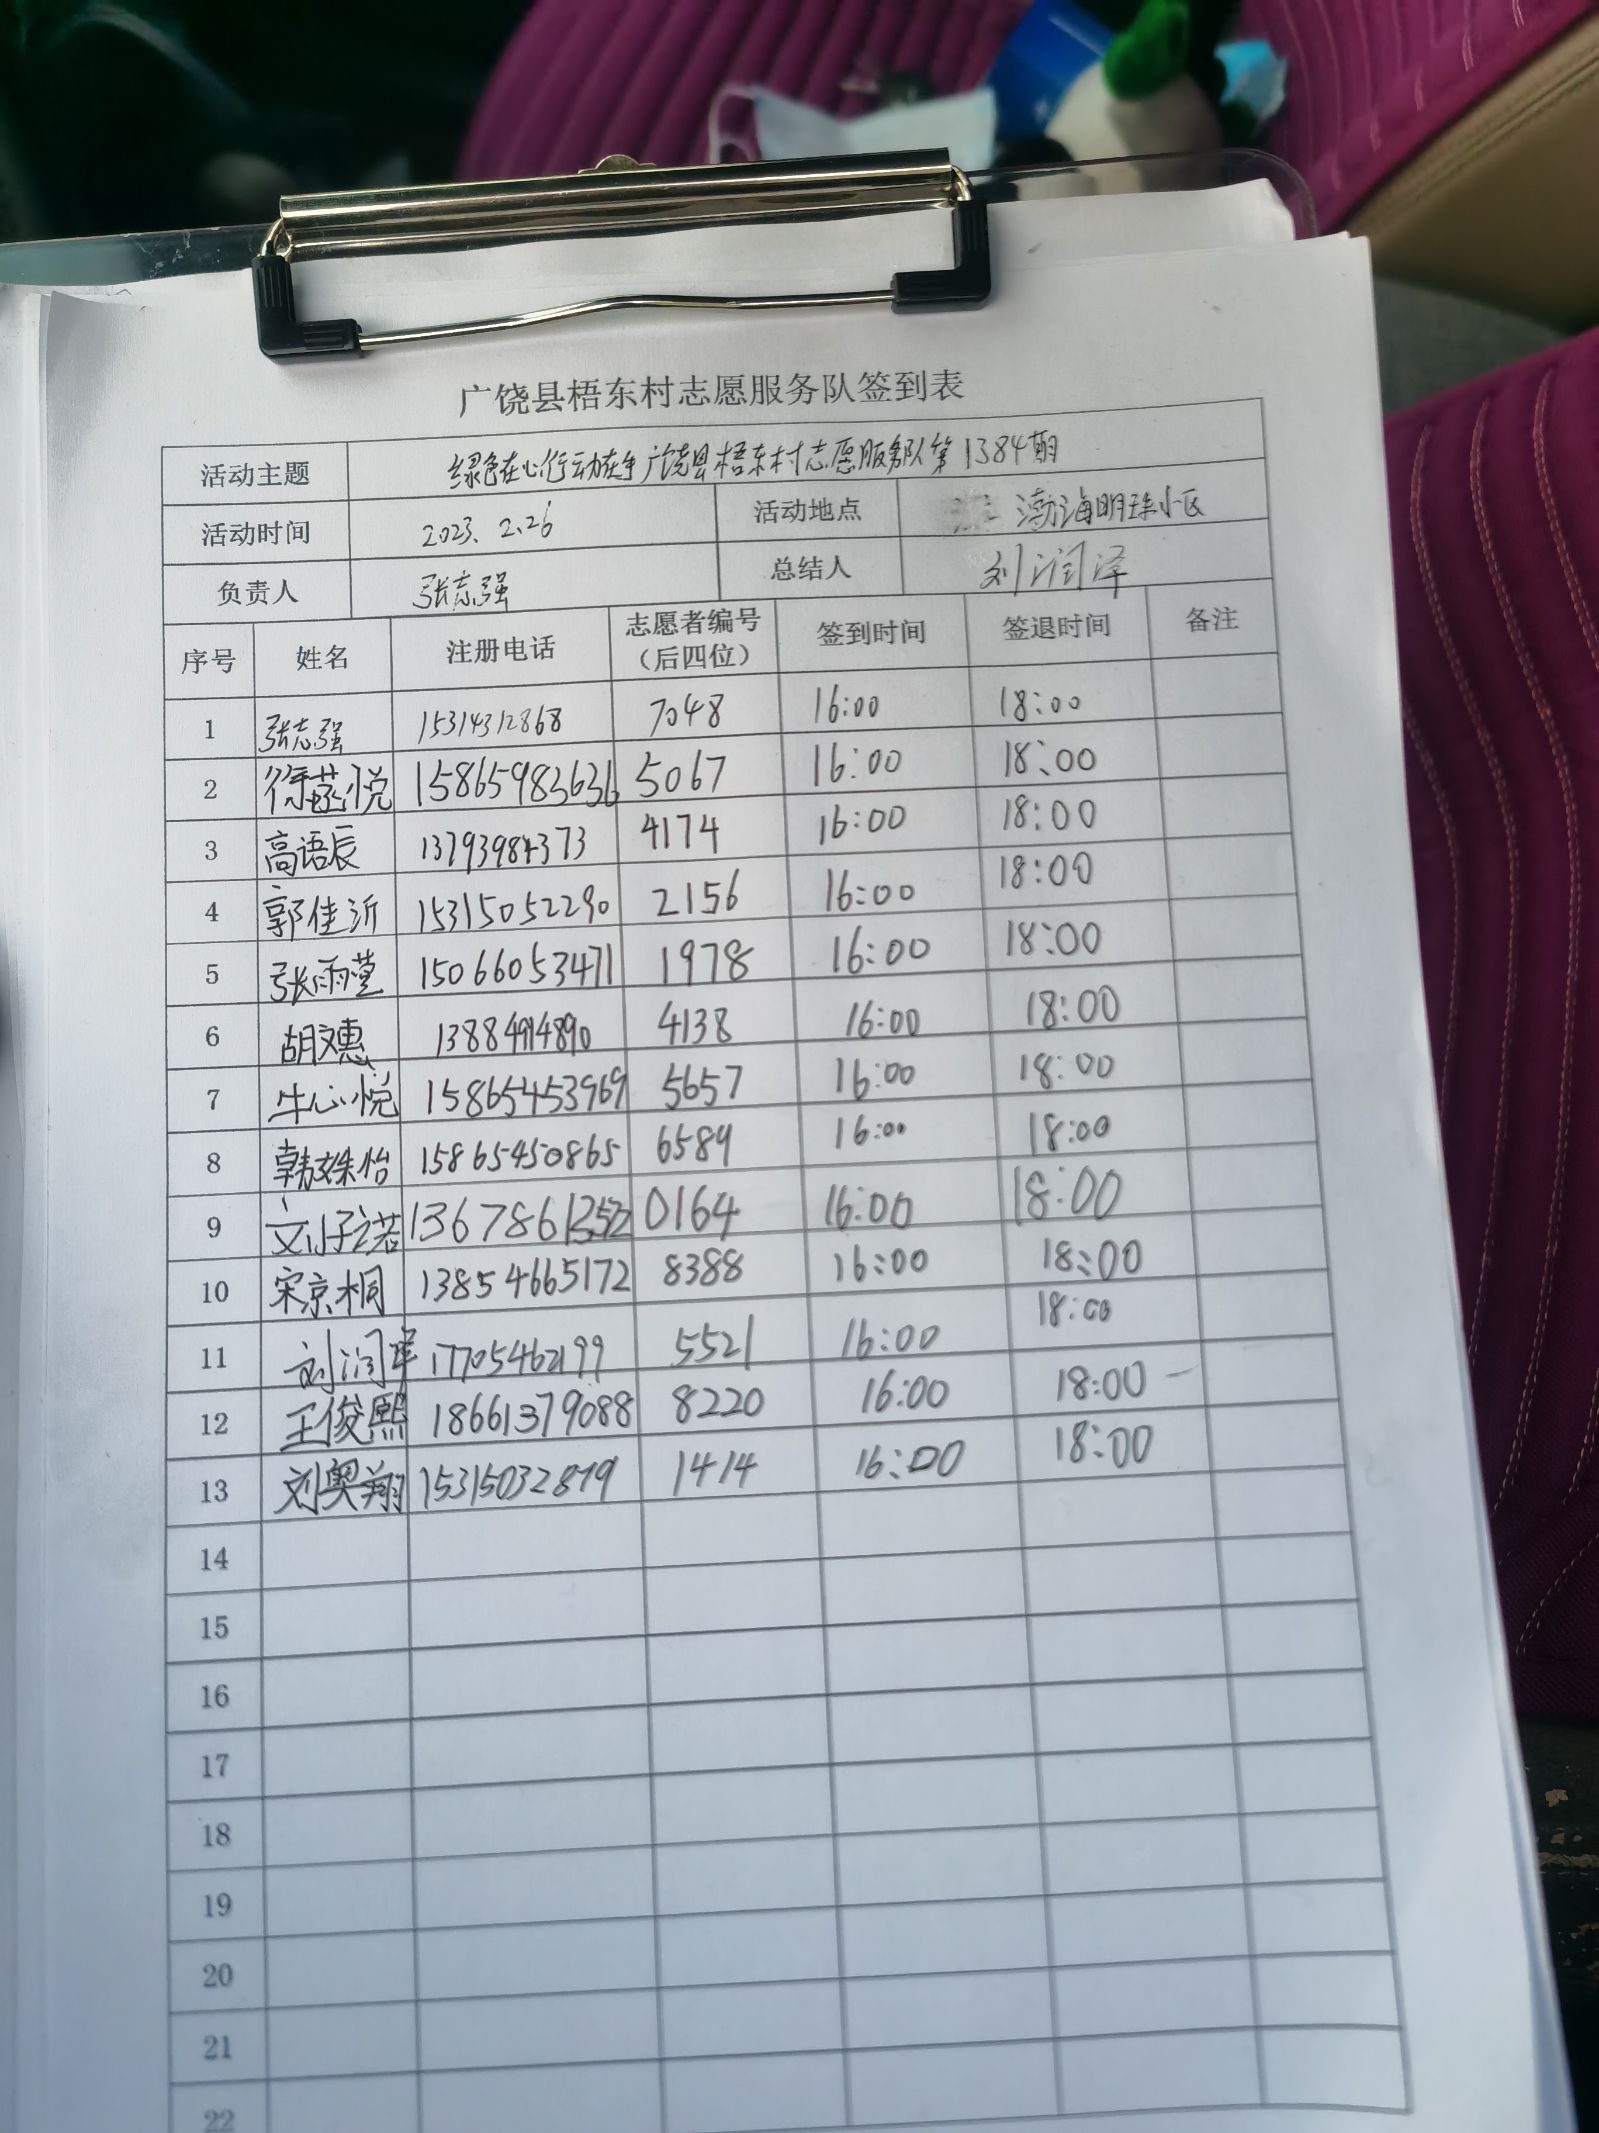 广饶县梧东村志愿服务队签到表
活动主题 绿色在心行动在手广饶县梧东村志愿服务队第1384期
活动时间 2023.2.26 活动地点 渤海明珠小区
负责人 张志强 总结人 刘润泽
序号 姓名 注册电话 志愿者编号（后四位） 签到时间 签退时间 备注
1 张志强 15314312868 7048 16:00 18:00
2 徐悦 15865983636 5067 16:00 18:00
3 高语辰 13793984373 4174 16:00 18:00
4 郭佳沂 15315052290 2156 16:00 18:00
5 张雨萱 15066053471 1978 16:00 18:00
6 胡文惠 13884914890 4138 16:00 18:00
7 牛心悦 15865453969 5657 16:00 18:00
8 韩姝怡 15865450865 6589 16:00 18:00
9 子诺 0164 16:00 18:00
10 宋京桐 13854665172 8388 16:00 18:00
11 刘润泽 17705462199 5521 16:00 18:00
12 王俊熙 18661379088 8220 16:00 18:00
13 刘奥翔 15315032879 1414 16:00 18:00
14
15
16
17
18
19
20
21
22